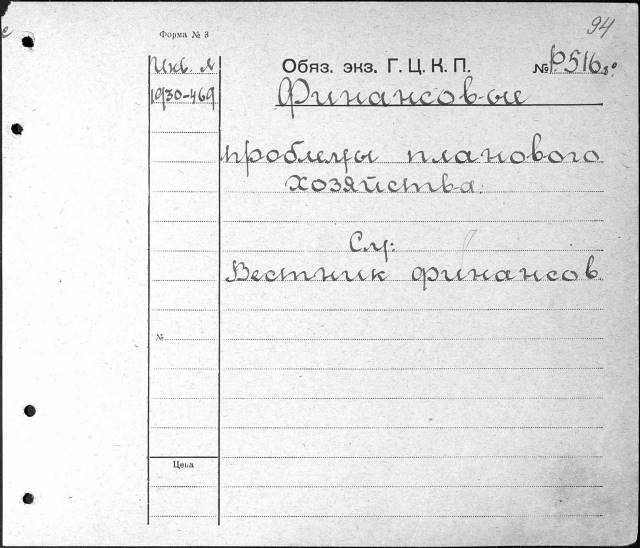 94
Форма № 3
Инв. №
1930-469
Обяз. экз. Г. Ц. К. П.
№ Р516
Финансовые
проблемы планового
хозяйства.
См:
Вестник финансов.
№
Цена